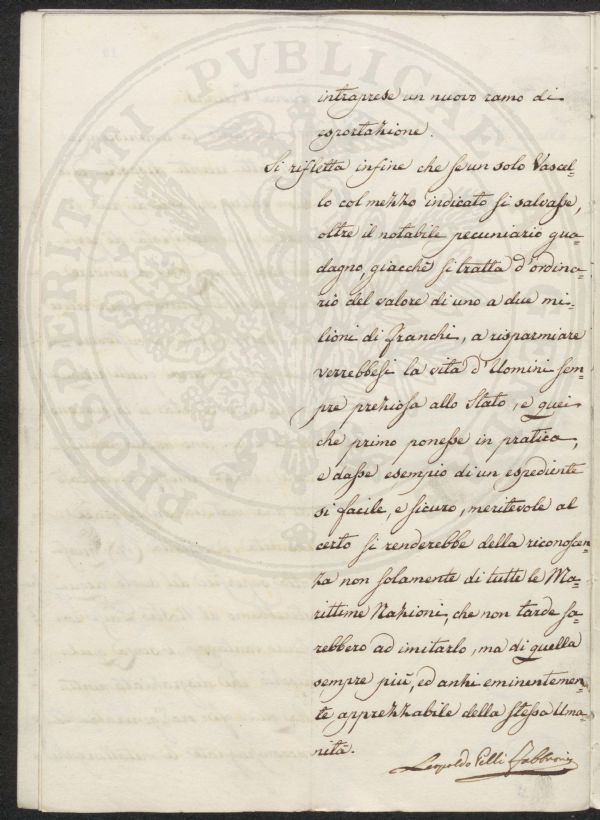 intraprese un nuovo ramo di
esportazione.
Si rifletta infine che se un solo Vascel=
lo col mezzo indicato si salvasse,
oltre il notabile pecuniario gua=
dagno, giacchè si tratta d'ordina=
rio del valore di uno a due mi=
lioni di franchi, a risparmiare
verrebbesi la vita d'Uomini sem=
pre preziosa allo Stato, e quei
che primo ponesse in pratica,
e dasse esempio di un espediente
sì facile, e sicuro, meritevole al
certo si renderebbe della riconoscen=
za non solamente di tutte le Ma=
rittime Nazioni, che non tarde sa=
rebbero ad imitarlo, ma di quella
sempre più, ed anzi eminentemen=
te apprezzabile della stessa Uma=
nità.
Leopoldo Pelli Fabbroni
PROSPERITATI PUBLICAE AUGENDAE